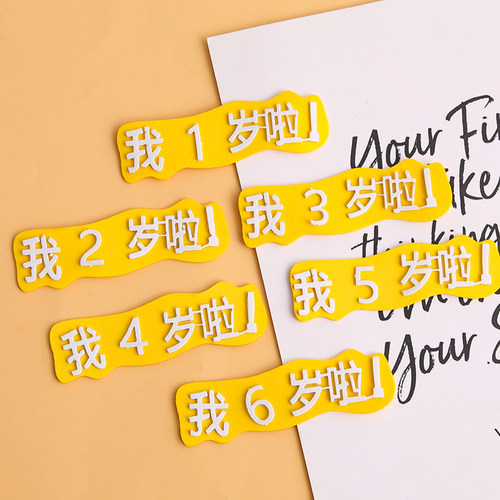 我1岁啦!
我2岁啦!
我3岁啦!
我4岁啦!
我5岁啦!
我6岁啦!
Your Fir
thinking
Your